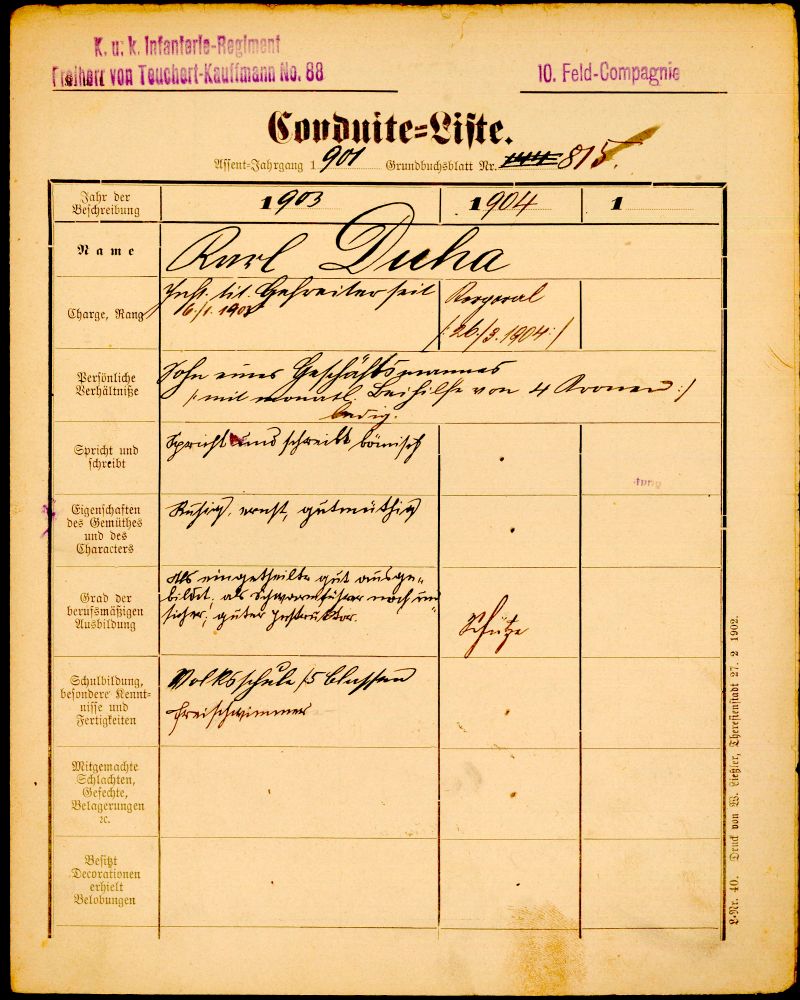 K. u. k. Infanterie-Regiment
Freiherr von Teuchert-Kauffmann No. 88
10. Feld-Compagnie
Conduite-Liste.
Assent-Jahrgang 1901 Grundbuchsblatt Nr. 815.
Jahr der Beschreibung
1903
1904
1
Name
Karl Ducha
Charge, Rang
Inft. tit. Gefreiter seit
16/1. 1903
Korporal
/: 26./3. 1904 :/
Persönliche Verhältniße
Sohn eines Geschäftsmannes
/: mit monatl. Beihilfe von 4 Kronen :/
ledig.
Spricht und schreibt
Spricht und schreibt bömisch
Eigenschaften
des Gemüthes
und des
Characters
Ruhig, ernst, gutmüthig
Grad der
berufsmäßigen
Ausbildung
Als eingetheilte gut ausge-
bildet, als Schwarmführer noch un-
sicher; guter Instruktor.
Schütze
Schulbildung,
besondere Kennt-
nisse und
Fertigkeiten
Volksschule /5 Classen
Freischwimmer
Mitgemachte
Schlachten,
Gefechte,
Belagerungen
ꝛc.
Besitzt
Decorationen
erhielt
Belobungen
L-Nr. 40. Druck von W. Ließler, Theresienstadt 27. 2 1902.